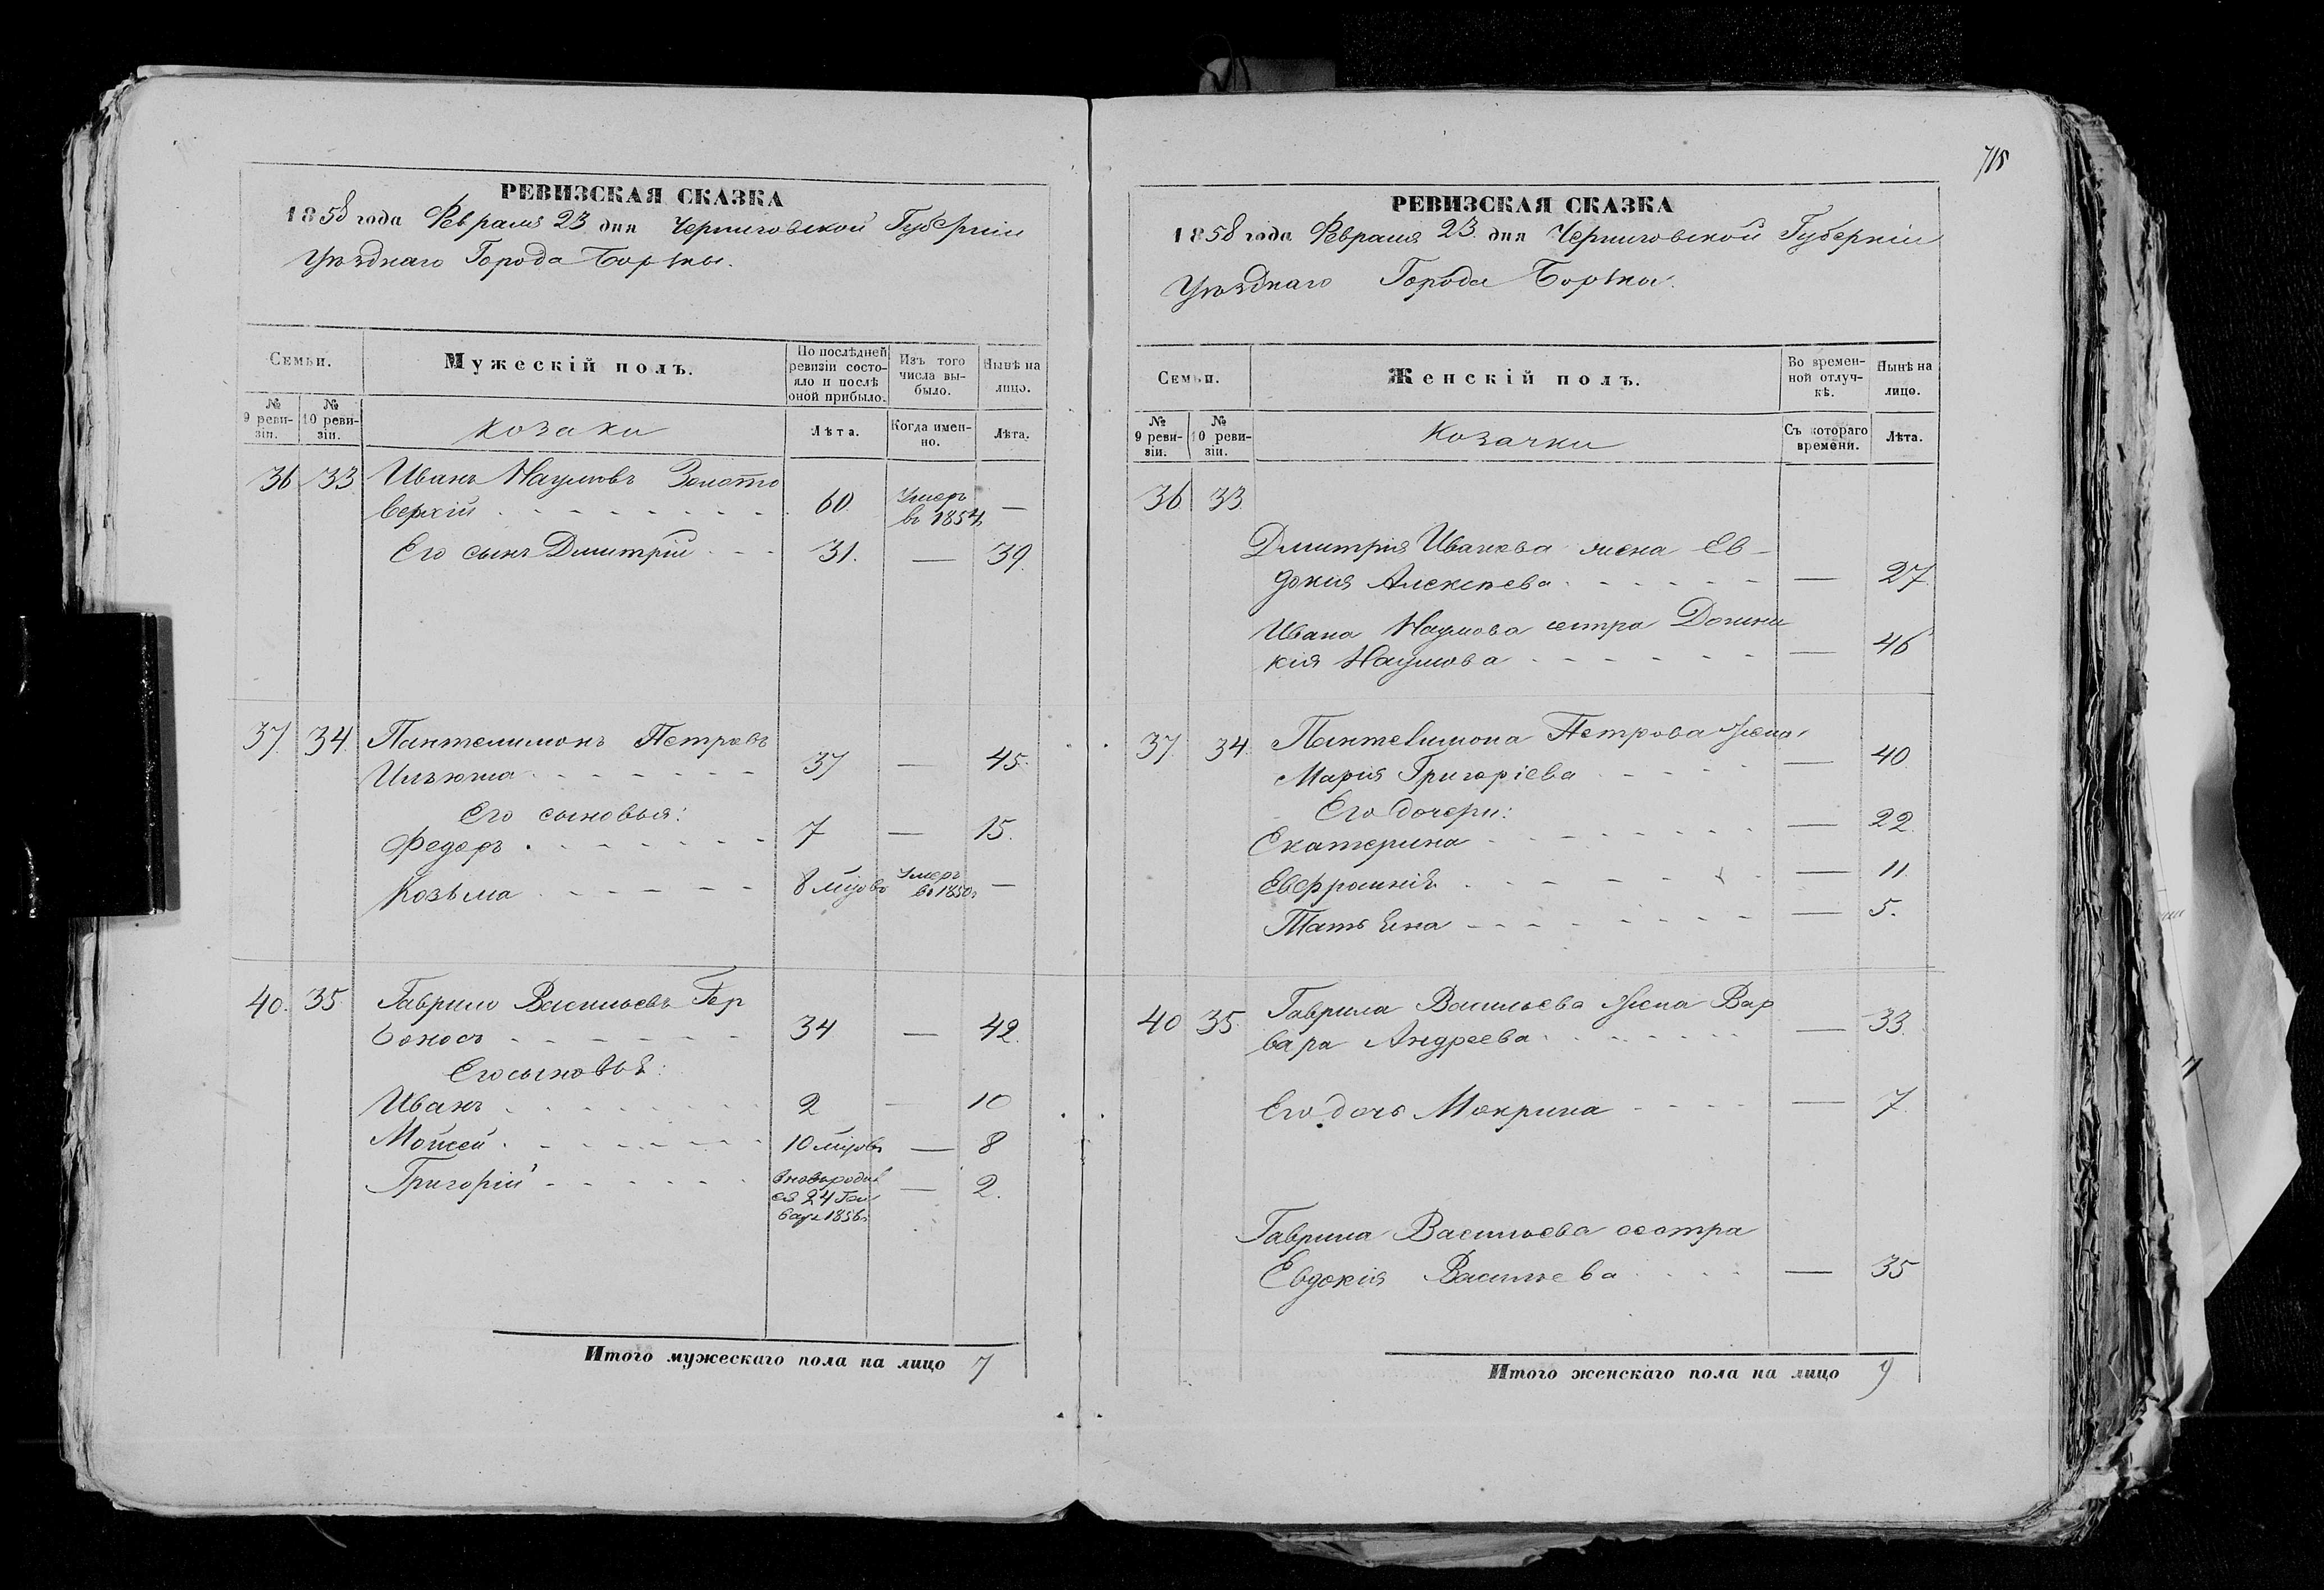 РЕВИЗСКАЯ СКАЗКА
1858 года Февраля 23 дня Черниговской Губерніи
Уѣзднаго Города Борзны.
Семьи.
Мужескій полъ.
По послѣдней ревизіи состояло и послѣ оной прибыло.
Изъ того числа выбыло.
Нынѣ на лицо.
№ 9 ревизіи.
№ 10 ревизіи.
Козаки
Лѣта.
Когда именно.
Лѣта.
36 33 Иванъ Наумовъ Золото
верхій 60 Умеръ в 1854 —
Его сынъ Дмитрій 31. — 39.
37. 34. Пантелимонъ Петровъ
Илъюша 37 — 45.
Его сыновья:
Федоръ 7 — 15.
Козьма 8 мцовъ Умеръ в 1850г —
40. 35. Гаврило Васильевъ Гор
боносъ 34 — 42.
Его сыновья:
Иванъ 2 — 10
Мойсей 10 мцовъ — 8
Григорій вновородив
ся 24 Ген
вар 1856г — 2.
Итого мужескаго пола на лицо 7
715
РЕВИЗСКАЯ СКАЗКА
1858 года Февраля 23 дня Черниговской Губерніи
Уѣзднаго Города Борзны.
Семьи.
Женскій полъ.
Во временной отлучкѣ.
Нынѣ на лицо.
№ 9 ревизіи.
№ 10 ревизіи.
Козачки
Съ котораго времени.
Лѣта.
36 33
Дмитрія Иванова жена Ев-
докія Алексѣева — 27.
Ивана Наумова сестра Домни
кія Наумова — 46
37. 34. Пантелимона Петрова жена
Марія Григоріева — 40
Его дочери:
Екатерина — 22.
Евфросинія — 11.
Татьяна — 5.
40 35. Гаврила Васильева жена Вар
вара Андреева — 33.
Его дочь Мокрина — 7.
Гаврила Васильева сестра
Евдокія Васильева — 35
Итого женскаго пола на лицо 9